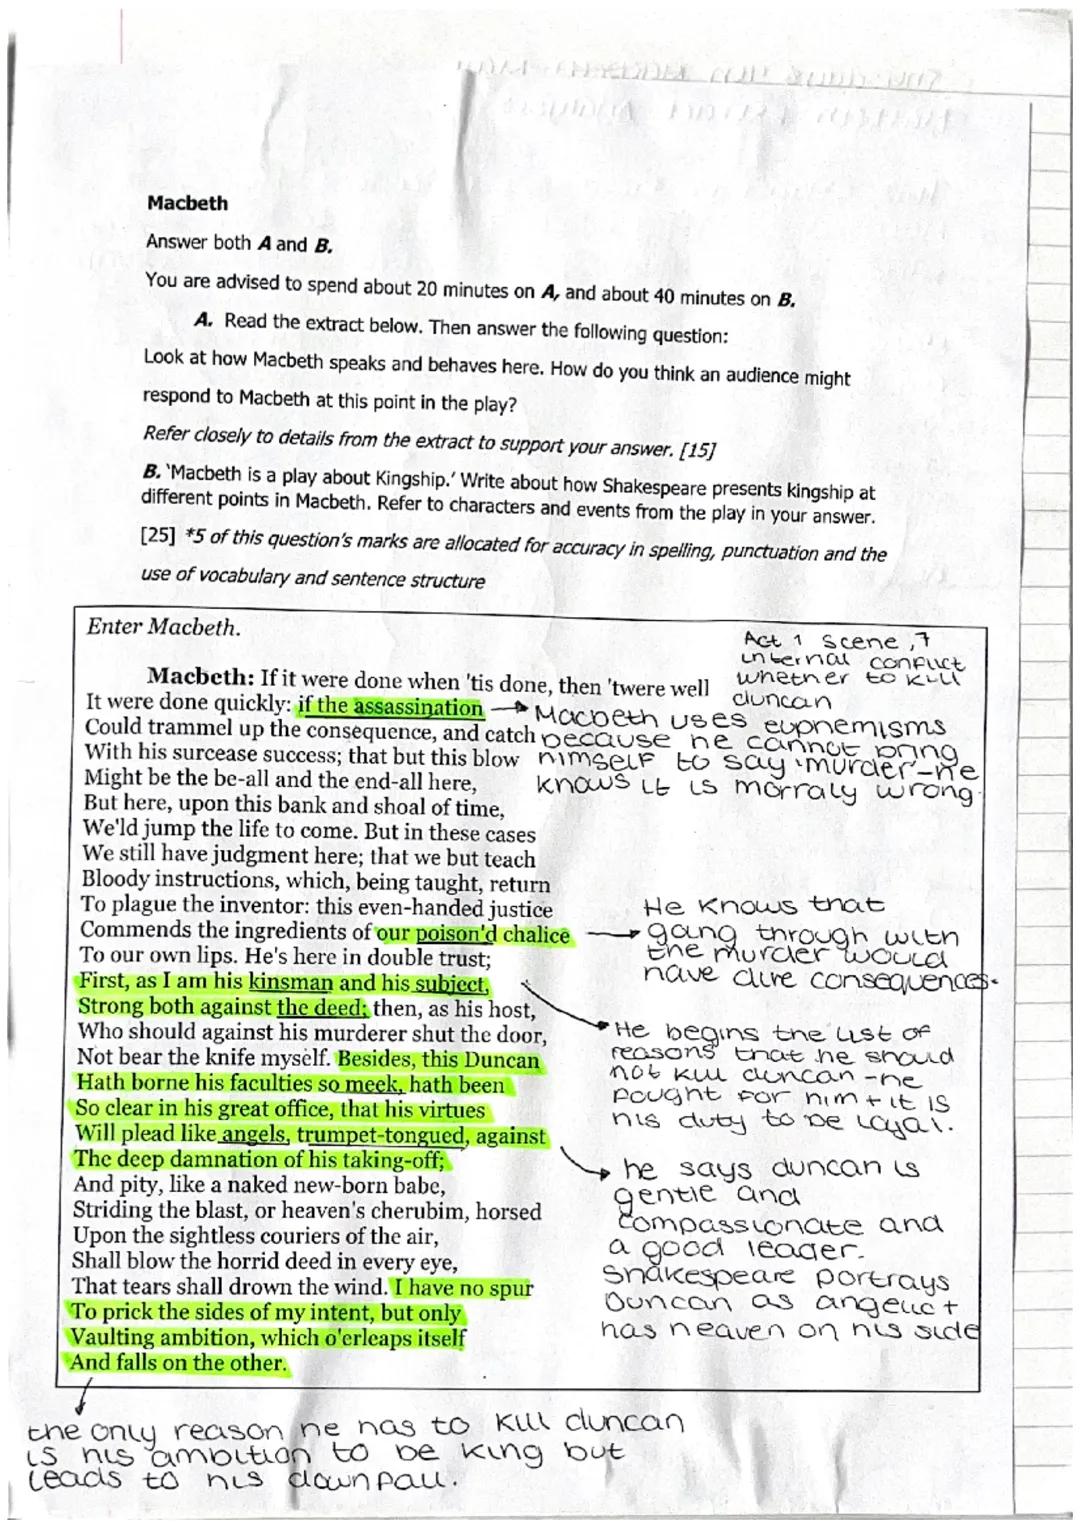 Macbeth
Answer both A and B.
You are advised to spend about 20 minutes on A, and about 40 minutes on B.
A. Read the extract below. Then answer the following question:
Look at how Macbeth speaks and behaves here. How do you think an audience might
respond to Macbeth at this point in the play?
Refer closely to details from the extract to support your answer. [15]
B. 'Macbeth is a play about Kingship.' Write about how Shakespeare presents kingship at
different points in Macbeth. Refer to characters and events from the play in your answer.
[25] *5 of this question's marks are allocated for accuracy in spelling, punctuation and the
use of vocabulary and sentence structure
Enter Macbeth.
Act 1 Scene, 7
internal conflict
whether to kill
duncan
Macbeth: If it were done when 'tis done, then 'twere well
It were done quickly: if the assassination
Could trammel up the consequence, and catch
With his surcease success; that but this blow
Might be the be-all and the end-all here,
But here, upon this bank and shoal of time,
We'ld jump the life to come. But in these cases
We still have judgment here; that we but teach
Bloody instructions, which, being taught, return
To plague the inventor: this even-handed justice
Commends the ingredients of our poison'd chalice
To our own lips. He's here in double trust;
First, as I am his kinsman and his subject,
Strong both against the deed; then, as his host,
Who should against his murderer shut the door,
Not bear the knife myself. Besides, this Duncan
Hath borne his faculties so meek, hath been
So clear in his great office, that his virtues
Will plead like angels, trumpet-tongued, against
The deep damnation of his taking-off;
And pity, like a naked new-born babe,
Striding the blast, or heaven's cherubim, horsed
Upon the sightless couriers of the air,
Shall blow the horrid deed in every eye,
That tears shall drown the wind. I have no spur
To prick the sides of my intent, but only
Vaulting ambition, which o'erleaps itself
And falls on the other.
Macbeth uses euphemisms
because he cannot bring
himself to say 'murder'-he
knows it is morraly wrong.
He knows that
going through with
the murder would
have dire consequences.
He begins the list of
reasons that he should
not kill duncan - he
fought for him + it is
his duty to be loyal.
he says duncan is
gentle and
compassionate and
a good leader.
Shakespeare portrays
Duncan as angelic +
has heaven on his side
the only reason he has to kill duncan
is his ambition to be king but
leads to his downfall.